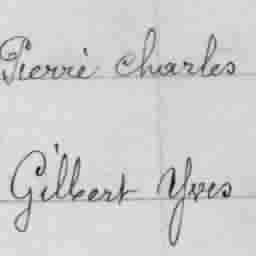 Pierre Charles
Gilbert Yves